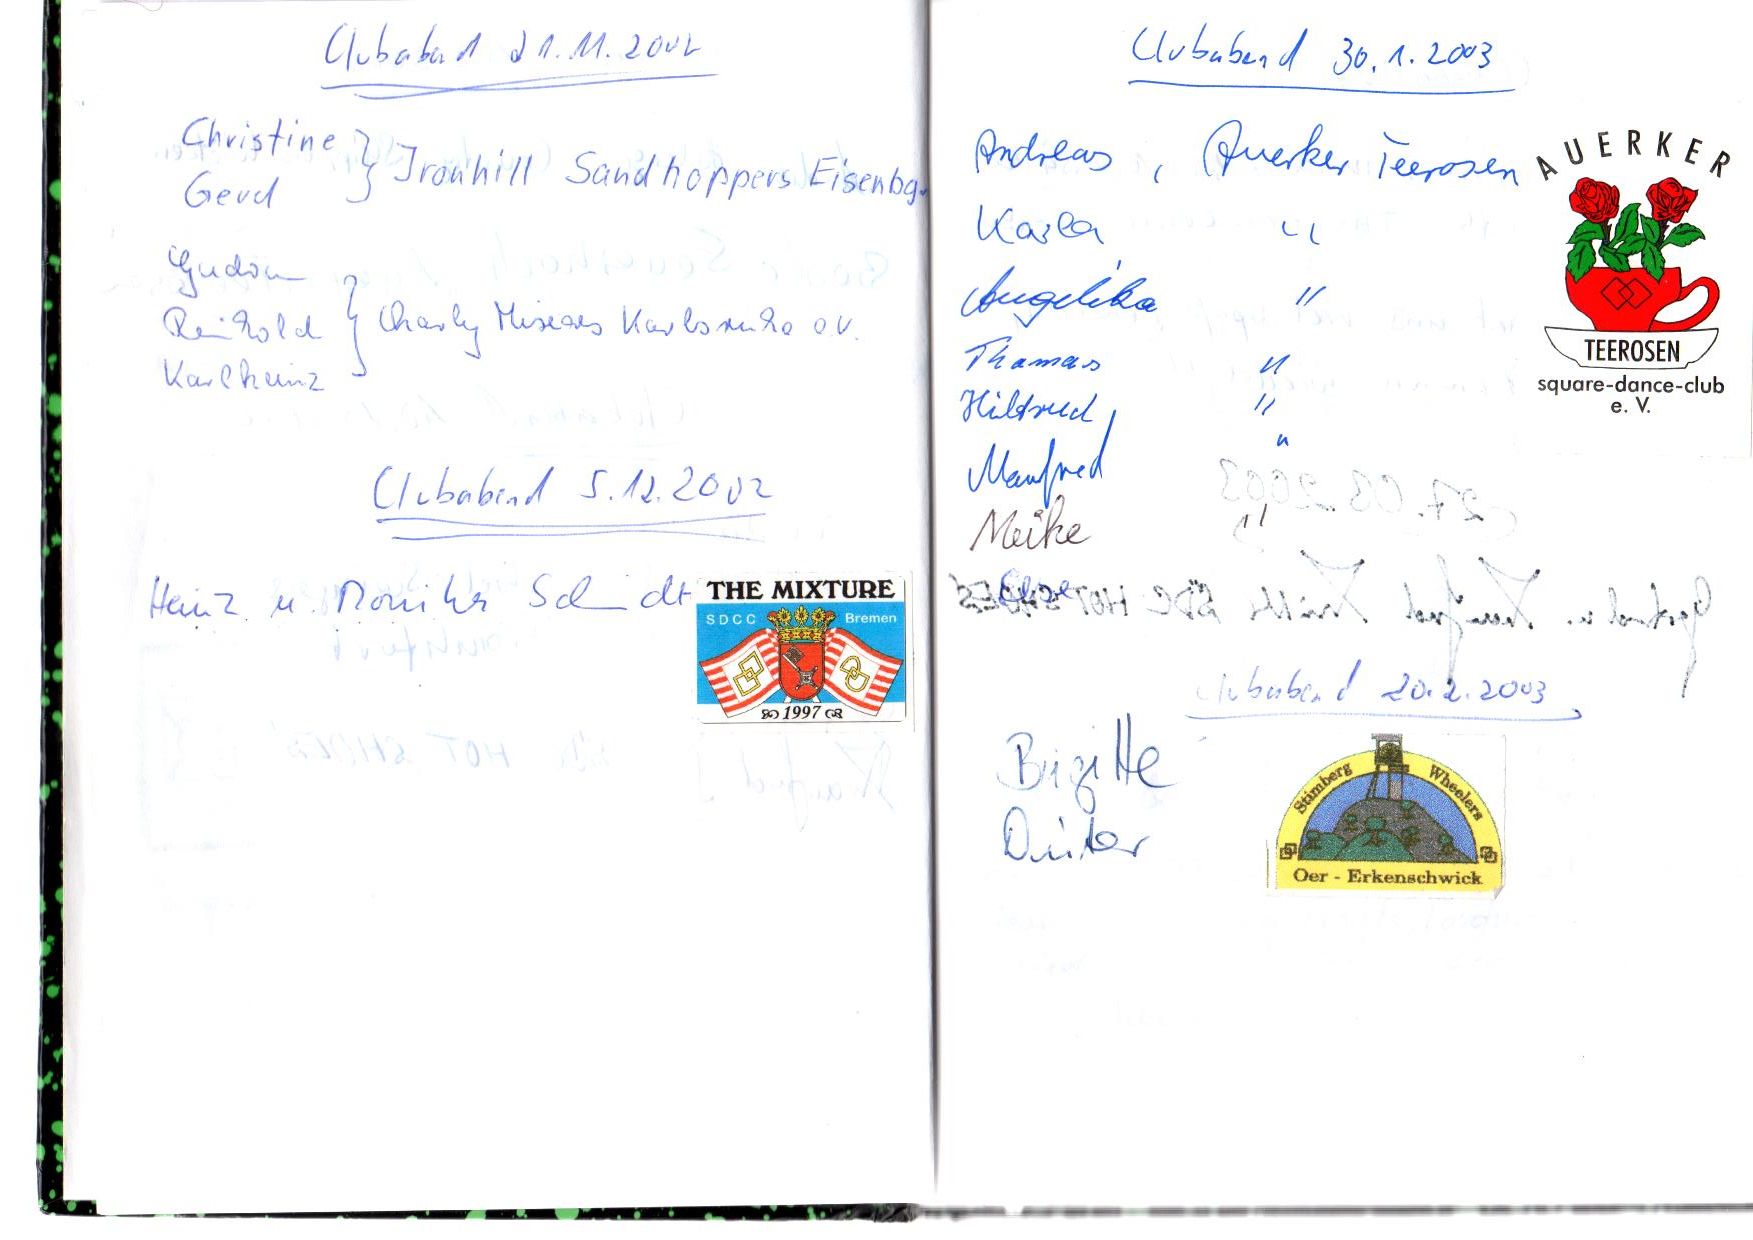 Clubabend 21.11.2002
Christine
Gerd
Ironhill Sandhoppers Eisenbg.
Gudrun
Reinhold
Karlheinz
Charly Mixers Karlsruhe e.V.
Clubabend 5.12.2002
Heinz u. Monika Schmidt
THE MIXTURE
SDCC Bremen
1997
Clubabend 30.1.2003
Andreas, Auerker Teerosen
Karla "
Angelika "
Thomas "
Hiltrud "
Manfred "
Meike "
AUERKER
TEEROSEN
square-dance-club
e. V.
27.03.2003
SDC HOT SHOES
Clubabend 20.2.2003
Brigitte
Dieter
Stimberg Wheelers
Oer - Erkenschwick